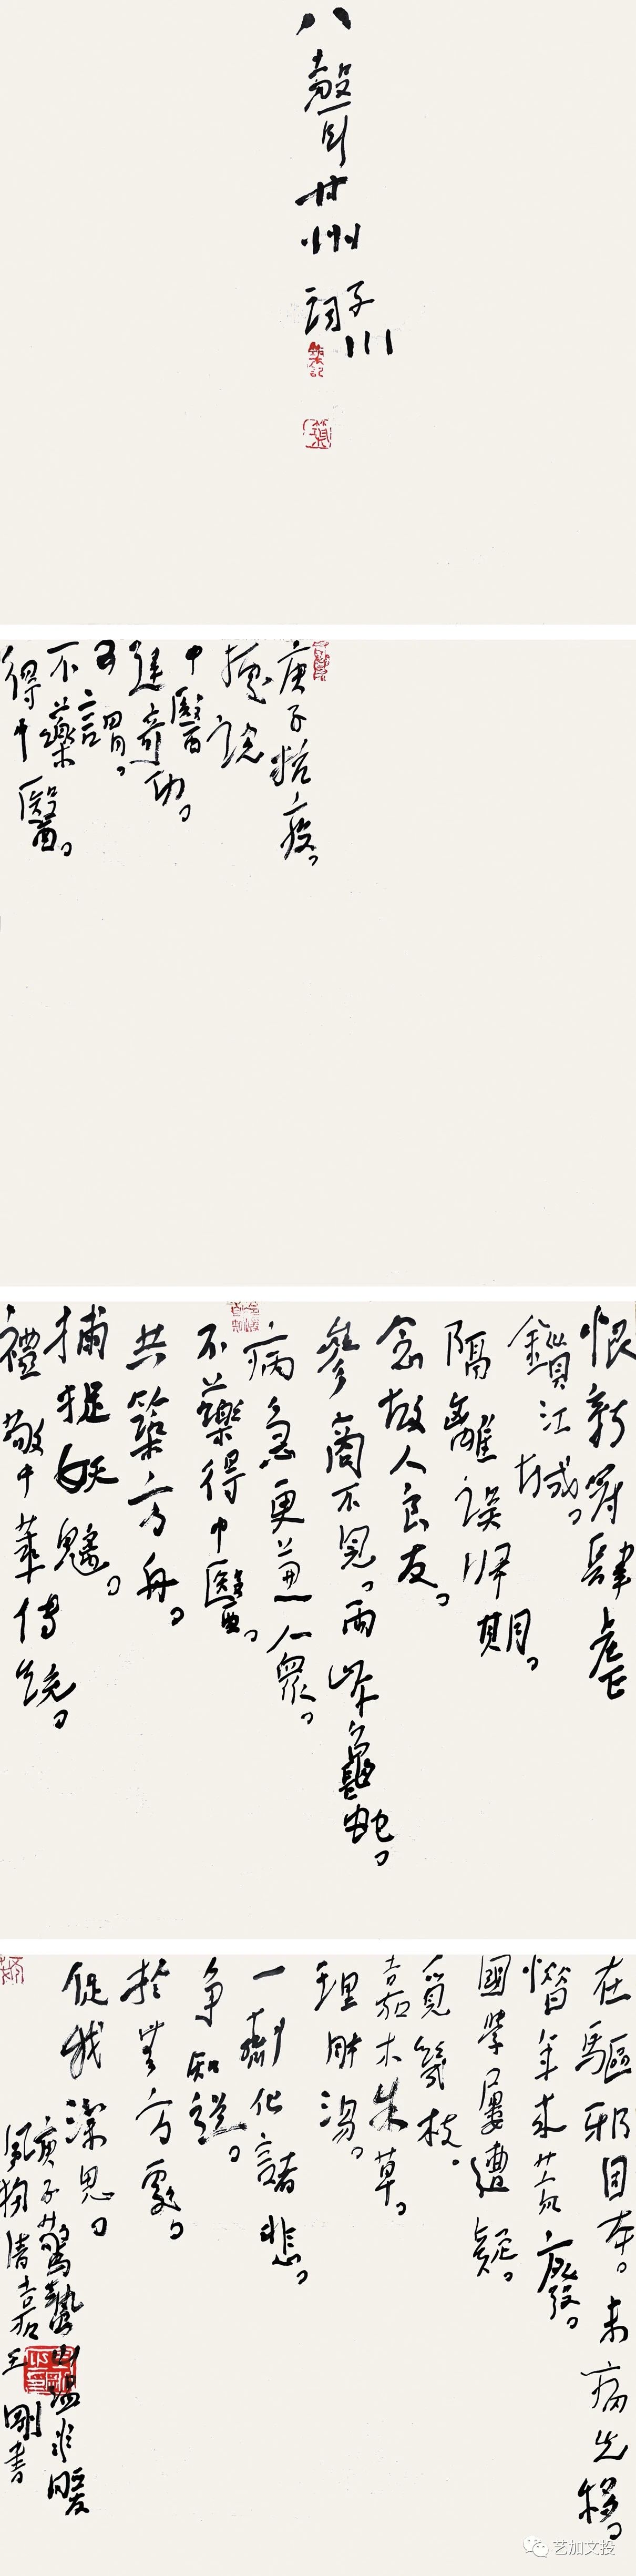 八聲甘州
子川
詞
庚子抗疫。
據說
中醫
建奇功。
可謂。
不藥
得中醫。
恨新冠肆虐
鎖江城。
隔離誤歸期。
念故人良友。
參商不見。兩岸龜蛇。
病急更兼人衆。
不藥得中醫。
共築方舟。
捕捉妖魑。
禮敬中華傳統。
在驅邪固本。未病先移。
惜年來荒廢。
國學屢遭疑。
覓幾枝。
嘉木朱草。
理肺湯。
一劑化諸悲。
爭知道。
於無方處。
促我思。
庚子驚蟄温非暖
風物清嘉王剛書
艺加文投